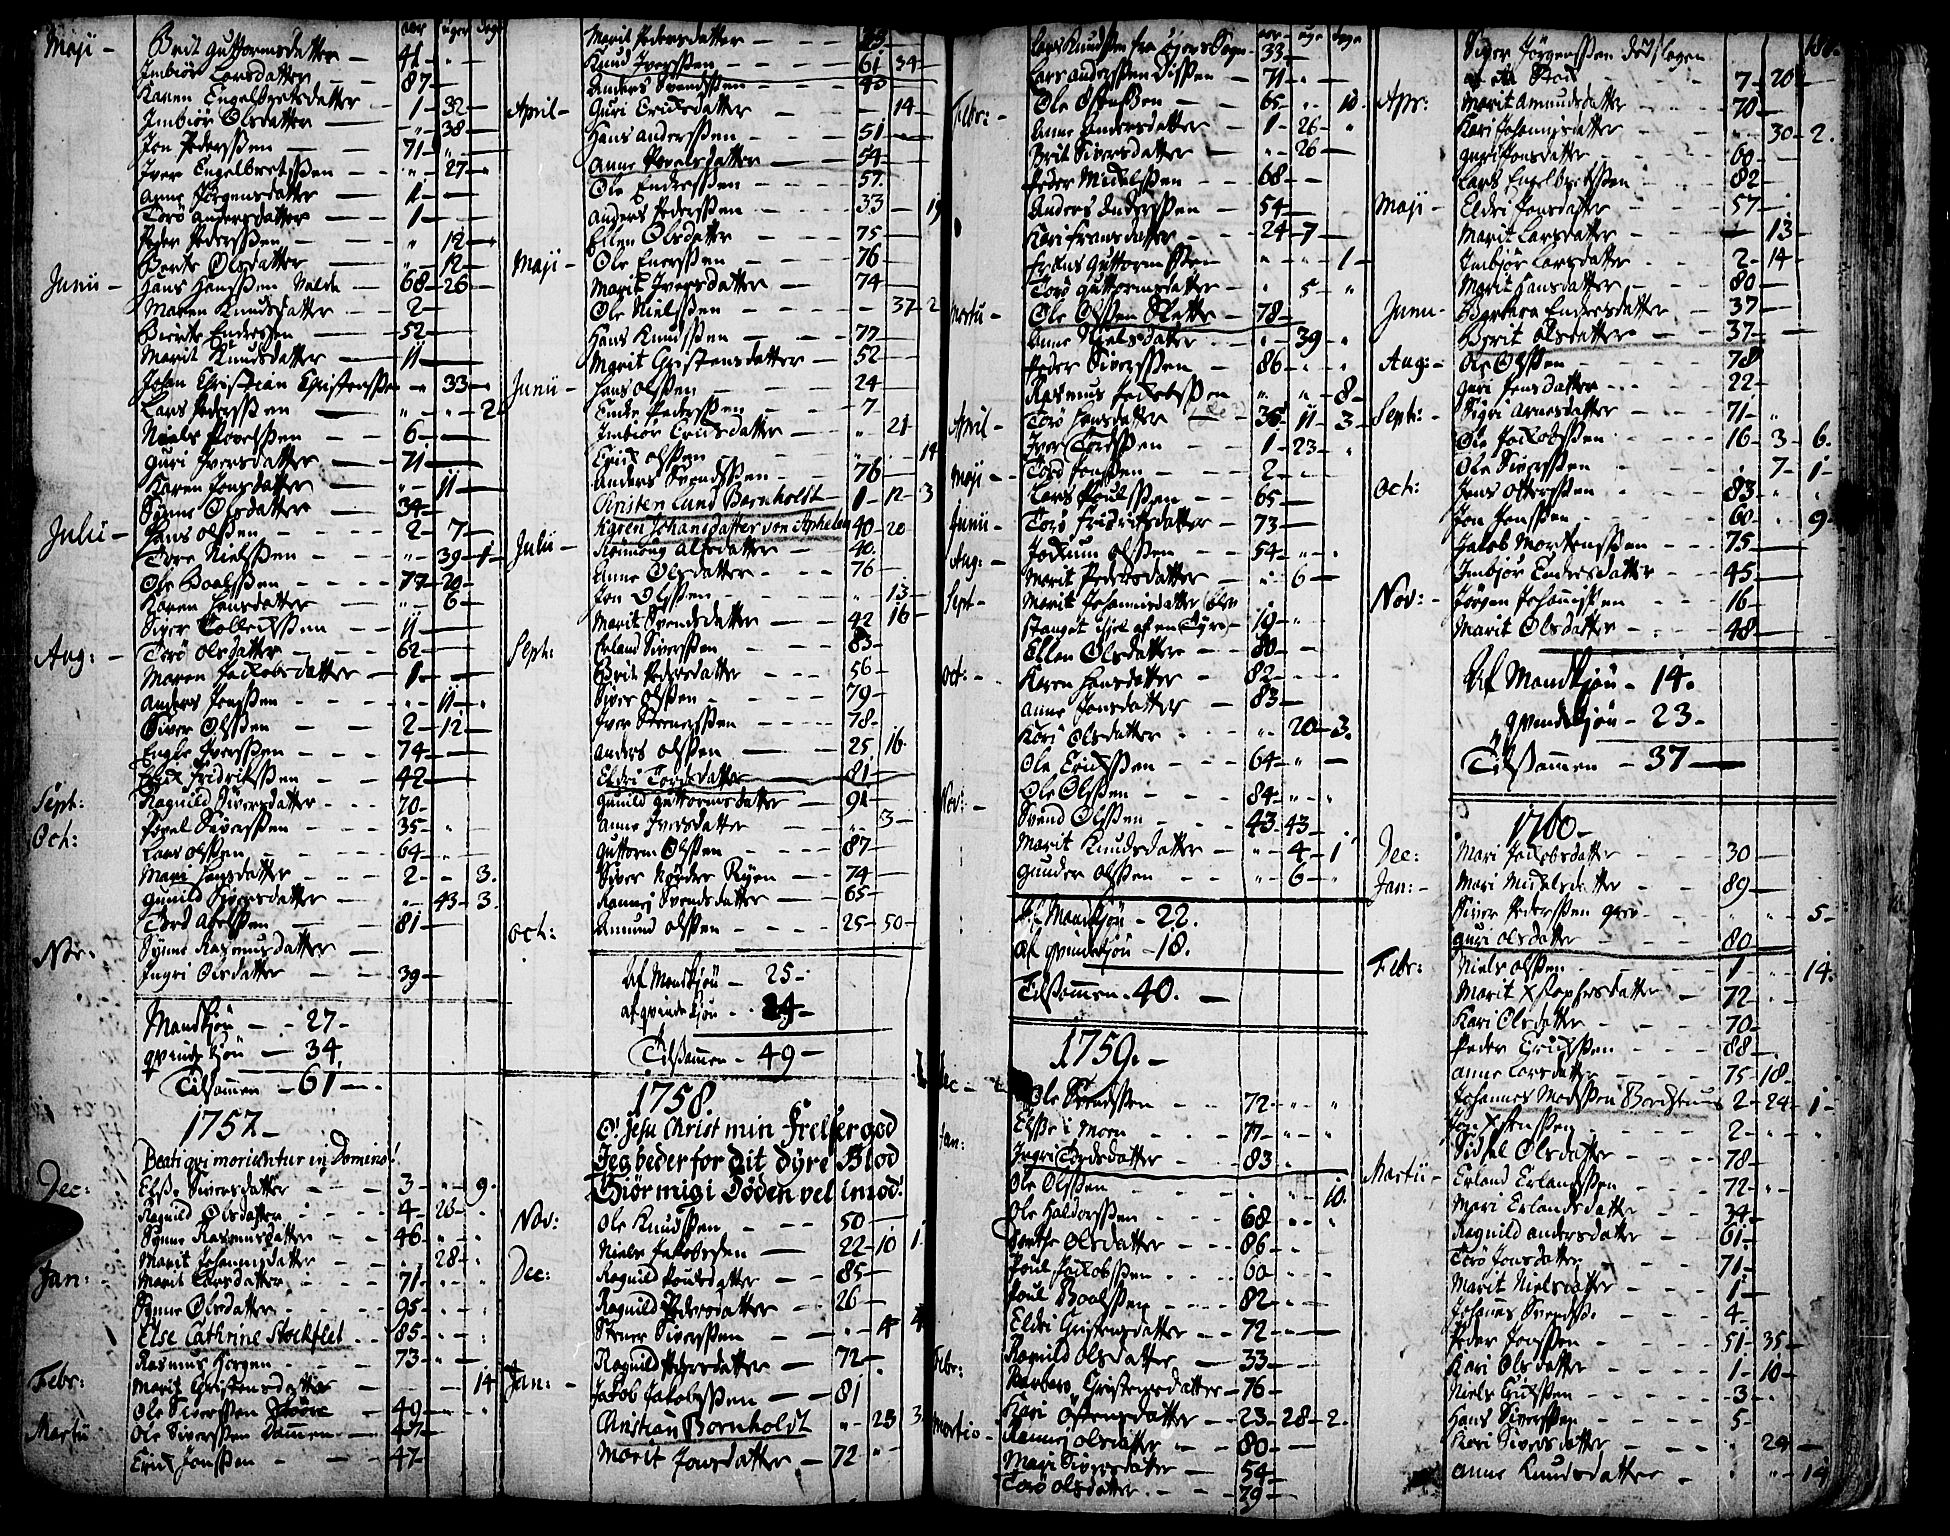 aar uger dage
Maji - Brit Guttormsdatter - 41 - " -
Imbiør Larsdatter - 87 -
Karen Engelbretsdatter - 1 - 32 -
Imbiør Olsdatter - " - 38 -
Jon Pederssen - 71 - " -
Iver Engelbretssen - - " - 27 - "
Anne Jørgensdatter - 1 -
Torø Andersdatter - 1 -
Peder Pederssen - - " 12 -
Berte Olsdatter - " - 12 -
Junii - Hans Hanssen Valde - 68 - 26 -
Maren Knudsdatter - - 2 -
Birte Enderssen - - 52 -
Marit Knudsdatter - 11 -
Johan Christian Christenssen - " 33 -
Lars Pederssen - " - " - 2
Niels Povelssen - - 6 -
Guri Iversdatter - 71 -
Karen Jonsdatter - " - 11 -
Synne Olsdatter - 34 -
Julii - Hans Olssen - - - 2 - 7 -
Tore Nielssen - - - " - 39 - 1 -
Ole Boelssen - - - 77 - 20 -
Karen Hansdatter - " - 6 -
Siver Tollefssen - 11 -
Aug: - Torø Olsdatter - - - 62 -
Maren Jacobsdatter - 1 -
Anders Jonssen - - - - 11 -
Siver Olssen - - - 2 - 12 -
Engle Iverssen - - - 74 -
Erik Fridrikssen - - - 42 -
Sept: Ragnild Siversdatter - - - 70 -
Och: Povel Siverssen - - - 35 - "
Lars Olssen - - - 64 -
Mari Hansdatter - - - 2 - - 3.
Gunild Siversdatter - - " - 43 - 3.
Tord Abelssen - - 81 -
Nov. Synne Rasmusdatter -
Ingri Olsdatter - - - 39 -
Mandkjøn - - 27 -
qvindekjøn - 34.
Tilsammen - 61 -
1757 -
Beati qvi moriuntur in Domino!
Dec: Else Siversdatter - - 3 - " - 9.
Ragnild Olsdatter - - 4 - 26 -
Synne Rasmusdatter - - 46 -
Marit Johannisdatter - - " 28 -
Jan: Marit Larsdatter - - - 71 - " - "
Synne Olsdatter - - - 95 - " -
Else Cathrine Stockflet - - 85 - " -
Rasmus Horgen - - - 73 - " -
Febr: Marit Christensdatter - - - 14
Ole Siverssen - 49 - "
Martii Ole Siverssen Dammen - 47 -
Erik Jonssen - - - 47 -
Marit Pedersdatter - - - 23 -
Knud Iverssen - - - 61 34 -
Anders Svendssen - - - 40
April - Guri Ericksdatter - - 14 -
Hans Anderssen - - - 51 -
Anne Povelsdatter - 54 -
Ole Enderssen - - - 57.
Anders Pederssen - - - 33 -
Ellen Olsdatter - - - 75 -
Maji - Ole Enerssen - - - 76 -
Marit Iversdatter - - 74 -
Ole Nielssen - - - - 37 - 2
Hans Knudssen - - - 77 -
Marit Christensdatter - - 52
Junii - Hans Olssen - - - 24 -
Ende Pederssen - - - 7 -
Imbiør Ericksdatter - - " 21 -
Erick Olssen - - - " 14
Anders Svendssen - - 76 -
Christen Lund Bornholdt - 1 - 12 - 3
Karen Johansdatter von Aphelen 40 20
Julii - Rønnoug Alfsdatter - 40.
Anne Olsdatter - - - 76 -
Jon Olssen - - - " 13 -
Marit Svendsdatter - - 42 16 -
Sept: Erland Siverssen - - 83 -
Brit Pedersdatter - - - 56
Siver Olssen - - - 79 -
Iver Stenerssen - - - 78 -
Anders Olssen - - 25 16
Eldri Tordsdatter - 81 -
Gunild Guttormsdatter - 91 -
Anne Iversdatter - - " 3 -
Guttorm Olssen - - 87 -
Siver Nørder Ryen - - 74 -
Rannei Svendsdatter - - 65 -
Och: Amund Olssen - - - - 25 - 50 -
Af Mandkjøn - 25 -
af qvindekjøn - - 24 -
Tilsammen - 49 -
1758.
O! Jesu Christ min Frelser god
Jeg beder for dit dyre Blod
Giør mig i Døden vel imod!
Nov: Ole Knudssen - - - 50 -
Niels Jakobssen - - 22 - 10 1
Dec: Ragnild Poulsdatter - - 85 -
Ragnild Pedersdatter - - 26 -
Stener Siverssen - - " - 4 4
Ragnild Pedersdatter - 72 -
Jan: - Jakob Jakobssen - - 81
Christian Bornholdt - " 23 3
Marit Jonsdatter - - 72 "
aar uge dage
Lars Knudssen fra Sogn - 33 -
Lars Anderssen - - 71 -
Febr: - Ole - - 65 - " 10
Anne Andersdatter - - 1 - 26 - "
Brit Siversdatter - - " - 26 -
Peder Mickelssen - - - 68 -
Anders Anderssen - - - 54 -
Kari Fransdatter - - - 24 - 7 -
Guttormssen - " - " - 1 -
Torø Guttormsdatter - - " 5 - "
Martii - Ole Olssen Slette - - 78 -
Anne Nielsdatter - - " 39 - "
Peder Siverssen - - 86 - "
Rasmus Jackobssen - " " - 8 -
April - Torø Hansdatter - 36 - 11 - 3 -
Iver Tordssen - - - 1 - 23 - "
Maji - Tord Jonssen - - - 2 -
Lars Poulssen - - - 65 -
Junii - Torø Fridriksdatter - - 73 -
Aug: - Jockum Olssen - - - 54 - " - "
Marit Pedersdatter - - " 6 -
Sept - Marit Johannisdatter blev
stanget ihjel af en Tyre - 19 - "
Ellen Olsdatter - - - 80 -
Oct: - Karen Hansdatter - 82 -
Anne Jonsdatter - 83 -
Kari Olsdatter - - - " - 20 - 3.
Ole Erickssen - - - 64 - " -
Nov: - Ole Olssen - - - - 84 - " - "
Svend Olssen - - - 43 - 43 -
Marit Knudsdatter - - " 4 - 1
Gunder Olssen - - - " 6 - "
Af Mandkjøn - 22.
Af qvindekjøn - 18.
Tilsammen - 40. -
1759. -
Dec - Ole Svendssen - - 72 - " - "
Jan: Elsse i Moen - - - 77 - " - "
Ingri Tordsdatter - - 83
Ole Olssen - - - - " - 10.
Ole Haldorssen - - - 68 - " - "
Berthe Olsdatter - - - 86 - "
Poul Jackobssen - - - 60 - "
Poul Boelssen - - - 82 - "
Eldri Christensdatter - - 72 - "
Febr: Ragnild Olsdatter - - - 33 -
Barbara Christensdatter - 76 -
Kari Østensdatter - - 23 - 28 - 2.
Martio - Rannei Olsdatter - - - 80 -
Mari Siversdatter - - - 54 -
Torø Olsdatter - - - 29 -
Siver Jørgenssen dødslagen
af en Stok - - - 7 - 20 -
Apr: Marit Amundsdatter - - 70 -
Kari Johannisdatter - - - 30 - 2.
Guri Jonsdatter - - - 60 -
Lars Engelbretssen - - 82
Maji - Eldri Jonsdatter - - - 57 -
Marit Larsdatter - - - 13 -
Imbjør Larsdatter - - - 2 - 14 -
Marit Hansdatter - - - 80 -
Junii - Barbara Endersdatter - 37 -
Berit Olsdatter - - 37 -
Aug: - Ole Olssen - - - - 78
Guri Jensdatter - - - 22 -
Sept: - Sigri Arnesdatter - - 71 - "
Ole Jackobssen - - - 16 - 3 - 6.
Ole Siverssen - - - " 7 - 1 -
Oct: Jens Otterssen - - - 83 - "
Jon Jonssen - - - 60 - " 9 -
Jakob Mortenssen - - - 75 -
Imbjør Endersdatter - - 45 -
Nov: - Jørgen Johannissen - - 16 -
Marit Olsdatter - - - 48 -
Af Mandkjøn - 14.
qvindekjøn - 23 -
Tilsammen - 37 -
1760 -
Dec: Mari Jackobsdatter - - 30 -
Jan: - Mari Mickelsdatter - - 89 -
Siver Pederssen - " - " - 5 -
Guri Olsdatter - - - 80
Febr: Niels Olssen - - - 1 " 14.
Marit Xstophersdatter - 72 - "
Kari Olsdatter - - - 70 -
Peder Erickssen - - - 88 -
Anne Larsdatter - - - 75 - 18 -
Johannes Madssen - 2 - 24 - 1 -
Xstenssen - - - 2 - " "
Sidsel Olsdatter - - - 78 -
Martii - Erland Erlandssen - - 72 - "
Mari Erlandsdatter - - - 34 -
Ragnild Andersdatter - - 61 -
Torø Jonsdatter - - - 71 -
Marit Nielsdatter - - - 1 -
Johanes - - - 4 -
Peder Jonssen - - - 51 - 35 -
Kari Olsdatter - - - 1 - 10 -
Niels Erickssen - - - 3 -
Hans Siverssen - - - 5 -
Kari Siversdatter - - - " 24 -
Anne Knudsdatter - - " - " - 14